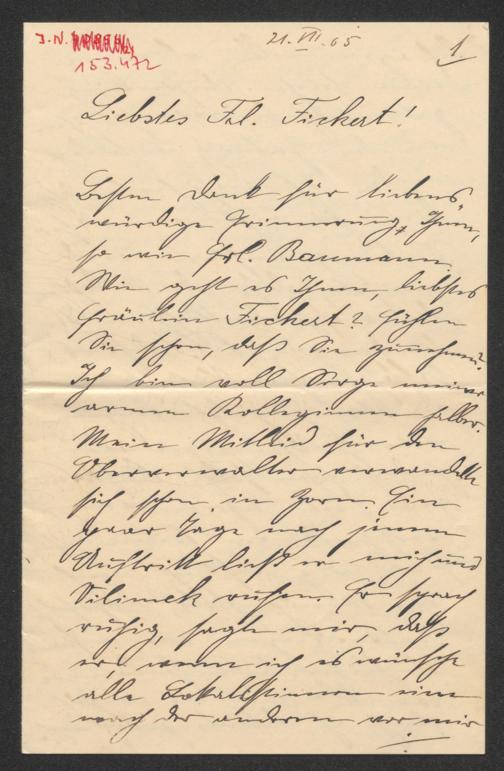 J.N.
153.472
21. VII. 05
1
Liebstes Frl. Fickert!
Besten Dank für liebens-
würdige Erinnerung, Ihnen,
so wie Frl. Baumann.
Wie geht es Ihnen, liebstes
Fräulein Fickert? Fühlen
Sie schon, daß Sie zunehmen?
Ich bin voll Sorge meiner
armen Kolleginnen halber.
Mein Mitleid für den
Oberverwalter verwandelte
sich schon in Zorn. Ein
paar Tage nach jenem
Auftritt ließ er mich und
Silimek rufen. Er sprach
ruhig, sagte mir, daß
er, wenn ich es wünsche
alle Lokalistinnen eine
nach der anderen vor mir